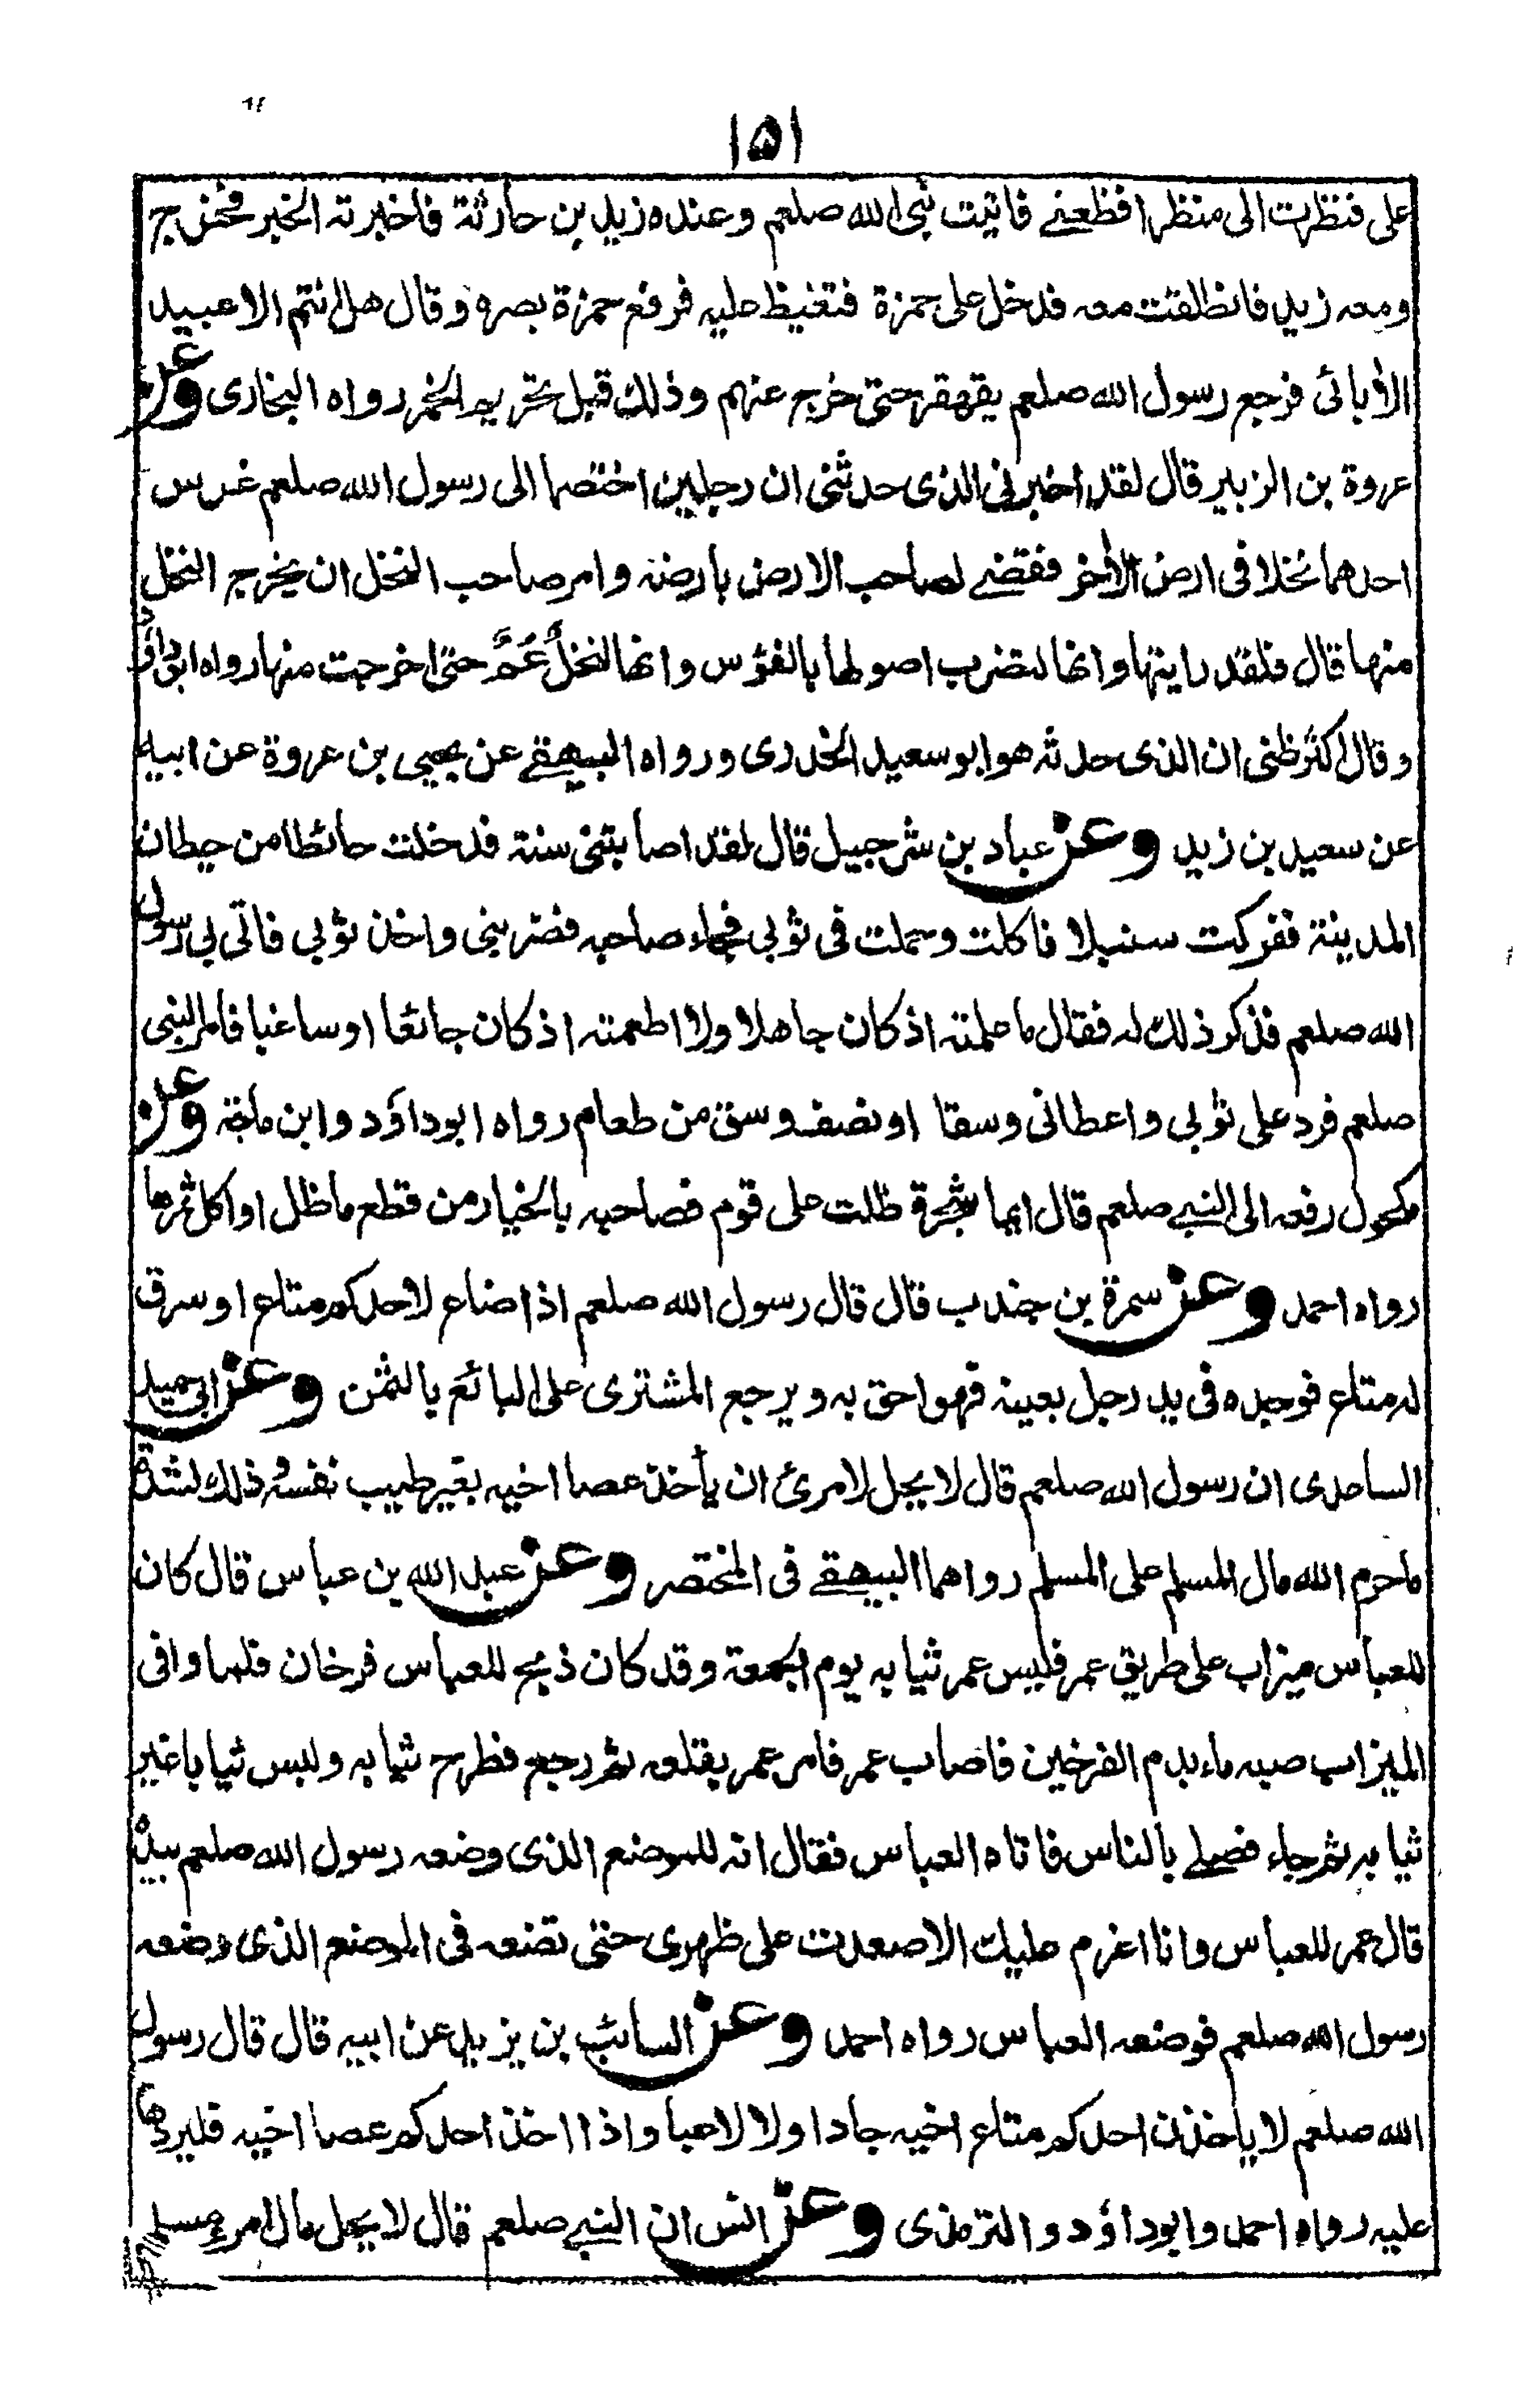 ١٥١
على فنظرت الى منظر افظعنے فاتيت نبى الله صلعم وعنده زيد بن حارثة فاخبرته الخبر فخرج
ومعه زيد فانطلقت معه فدخل على حمزة فتغيظ عليه فرفع حمزة بصره وقال هل انتم الا عبيد
الأبائى فرجع رسول الله صلعم يقهقر حتى خرج عنهم وذلك قبل تحريم الخمر رواه البخارى وعن
عروة بن الزبير قال لقد اخبرنى الذى حدثنى ان رجلين اختصما الى رسول الله صلعم غرس
احدهما نخلا فى ارض الأخر فقضے لصاحب الارض بارضه وامر صاحب النخل ان يخرج النخل
منها قال فلقد رايتها وانها لتضرب اصولها بالفؤس وانها لنخلٌ عُمٌّ حتى اخرجت منها رواه ابو داؤد
وقال اكثر ظنى ان الذى حدثه هو ابو سعيد الخدرى ورواه البيهقے عن يحيى بن عروة عن ابيه
عن سعيد بن زيد وعن عباد بن شرجيل قال لقد اصابتنى سنة فدخلت حائطا من حيطان
المدينة ففركت سنبلا فاكلت وحملت فى ثوبى فجاء صاحبه فضربنى واخذ ثوبى فاتى بى رسول
الله صلعم فذكر ذلك له فقال ما علمته اذ كان جاهلا ولا اطعمته اذ كان جائعا او ساغبا فامر النبى
صلعم فرد على ثوبى واعطانى وسقا او نصف وسق من طعام رواه ابو داؤد وابن ماجة وعن
مكحول رفعه الى النبے صلعم قال ايما شجرة ظلت على قوم فصاحبه بالخيار من قطع ما ظل او اكل ثمرها
رواه احمد وعن سمرة بن جندب قال قال رسول الله صلعم اذا ضاع لاحدكم متاع او سرق
له متاع فوجده فى يد رجل بعينه فهو احق به ويرجع المشترى على البائع بالثمن وعن ابى حميد
الساعدى ان رسول الله صلعم قال لا يحل لامرئ ان يأخذ عصا اخيه بغير طيب نفسه وذلك لشدة
ما حرم الله مال المسلم على المسلم رواهما البيهقے فى المختصر وعن عبد الله بن عباس قال كان
للعباس ميزاب على طريق عمر فلبس عمر ثيابه يوم الجمعة وقد كان ذبح للعباس فرخان فلما وافى
الميزاب صبه ماء بدم الفرخين فاصاب عمر فامر عمر بقلعه ثم رجع فطرح ثيابه ولبس ثيابا غير
ثيابه ثم جاء فصلے بالناس فاتاه العباس فقال انه للموضع الذى وضعه رسول الله صلعم بيده
قال عمر للعباس وانا اعزم عليك الا صعدت على ظهرى حتى تضعه فى الموضع الذى وضعه
رسول الله صلعم فوضعه العباس رواه احمد وعن السائب بن يزيد عن ابيه قال قال رسول
الله صلعم لا ياخذن احدكم متاع اخيه جادا ولا لاعبا واذا اخذ احدكم عصا اخيه فليردها
عليه رواه احمد وابو داؤد والترمذى وعن انس ان النبے صلعم قال لا يحل مال امرء مسلم